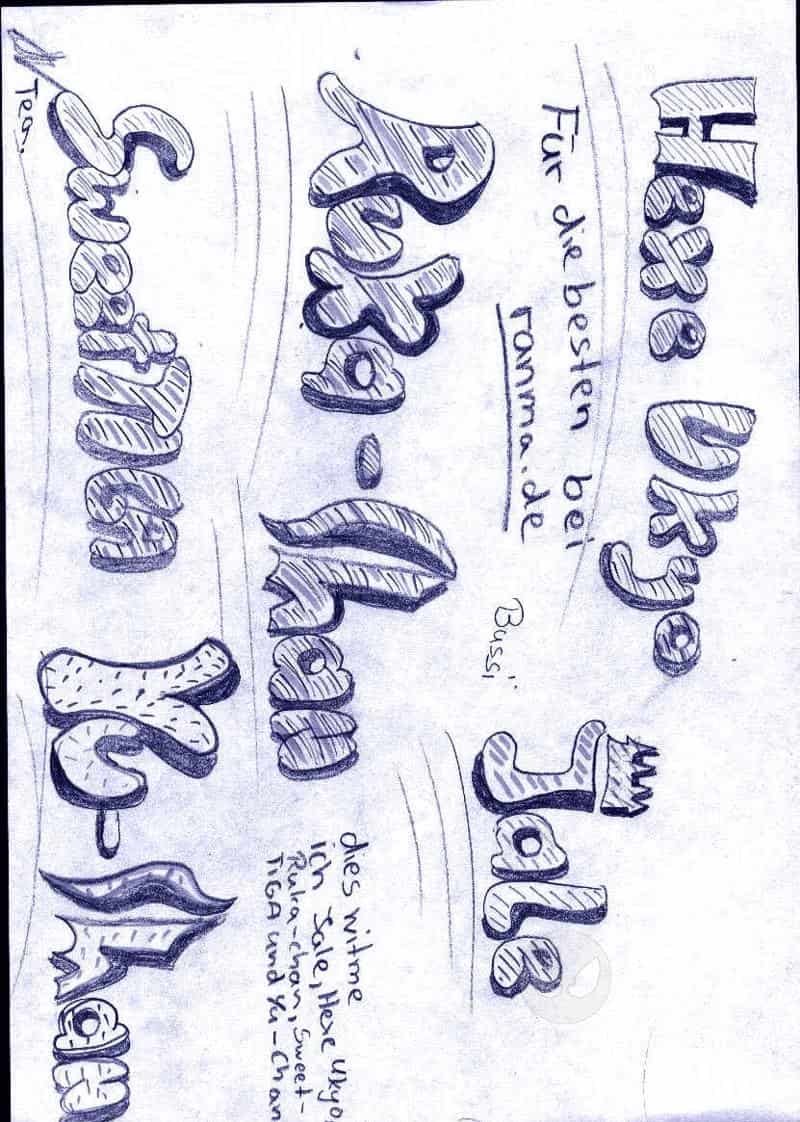 Hexe Ukyo
Für die besten bei
ranma.de
Bussi
Jale
Ruka-chan
dies witme
ich Jale, Hexe Ukyo,
Ruka-chan, Sweet-
TIGA und Yu-Chan
Yu-chan
Tea.